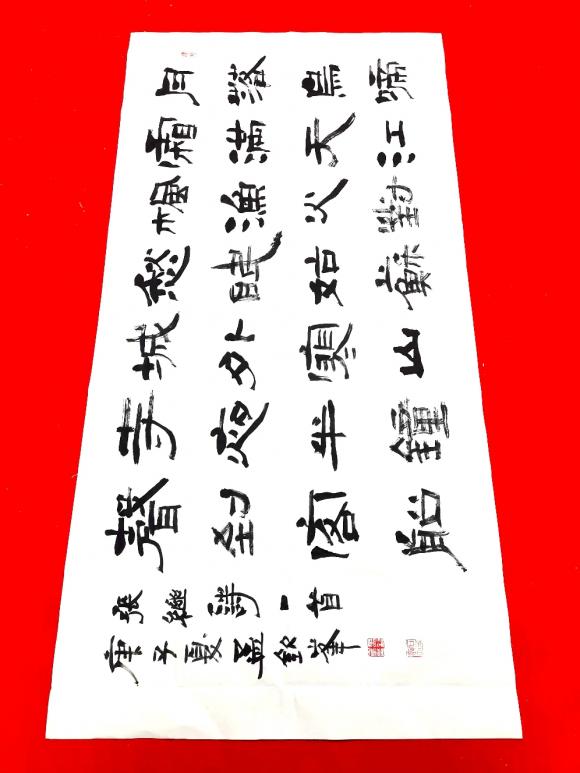 月落烏啼
霜滿天江
楓漁火對
愁眠姑蘇
城外寒山
寺夜半鐘
聲到客船
張繼詩一首
庚子夏欽峯